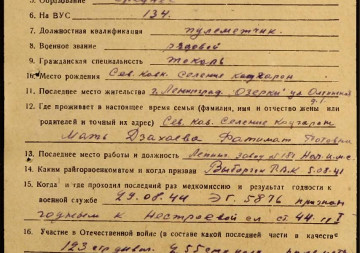 5. Образование среднее
6. На ВУС 134.
7. Должностная квалификация пулеметчик.
8. Военное звание рядовой
9. Гражданская специальность токарь
10. Место рождения Сев. кавк. Селение
11. Последнее место жительства г. Ленинград "Озерки" ул
12. Где проживает в настоящее время семья (фамилия, имя и отчество жены или
родителей и точный их адрес) Сев. кав. Селение
Мать Дзахоева Фатимат
13. Последнее место работы и должность Ленинг. завод №181
14. Каким райгорвоенкоматом и когда призван Выборгск РВК 5.08.41
15. Когда и где проходил последний раз медкомиссию и результат годности к
военной службе 29.08.44 ЭГ. 5876 признан
годным к нестроевой сл ст. 44
16. Участие в Отечественной войне (в составе какой последней части в качеств
123 стр дивиз. 255